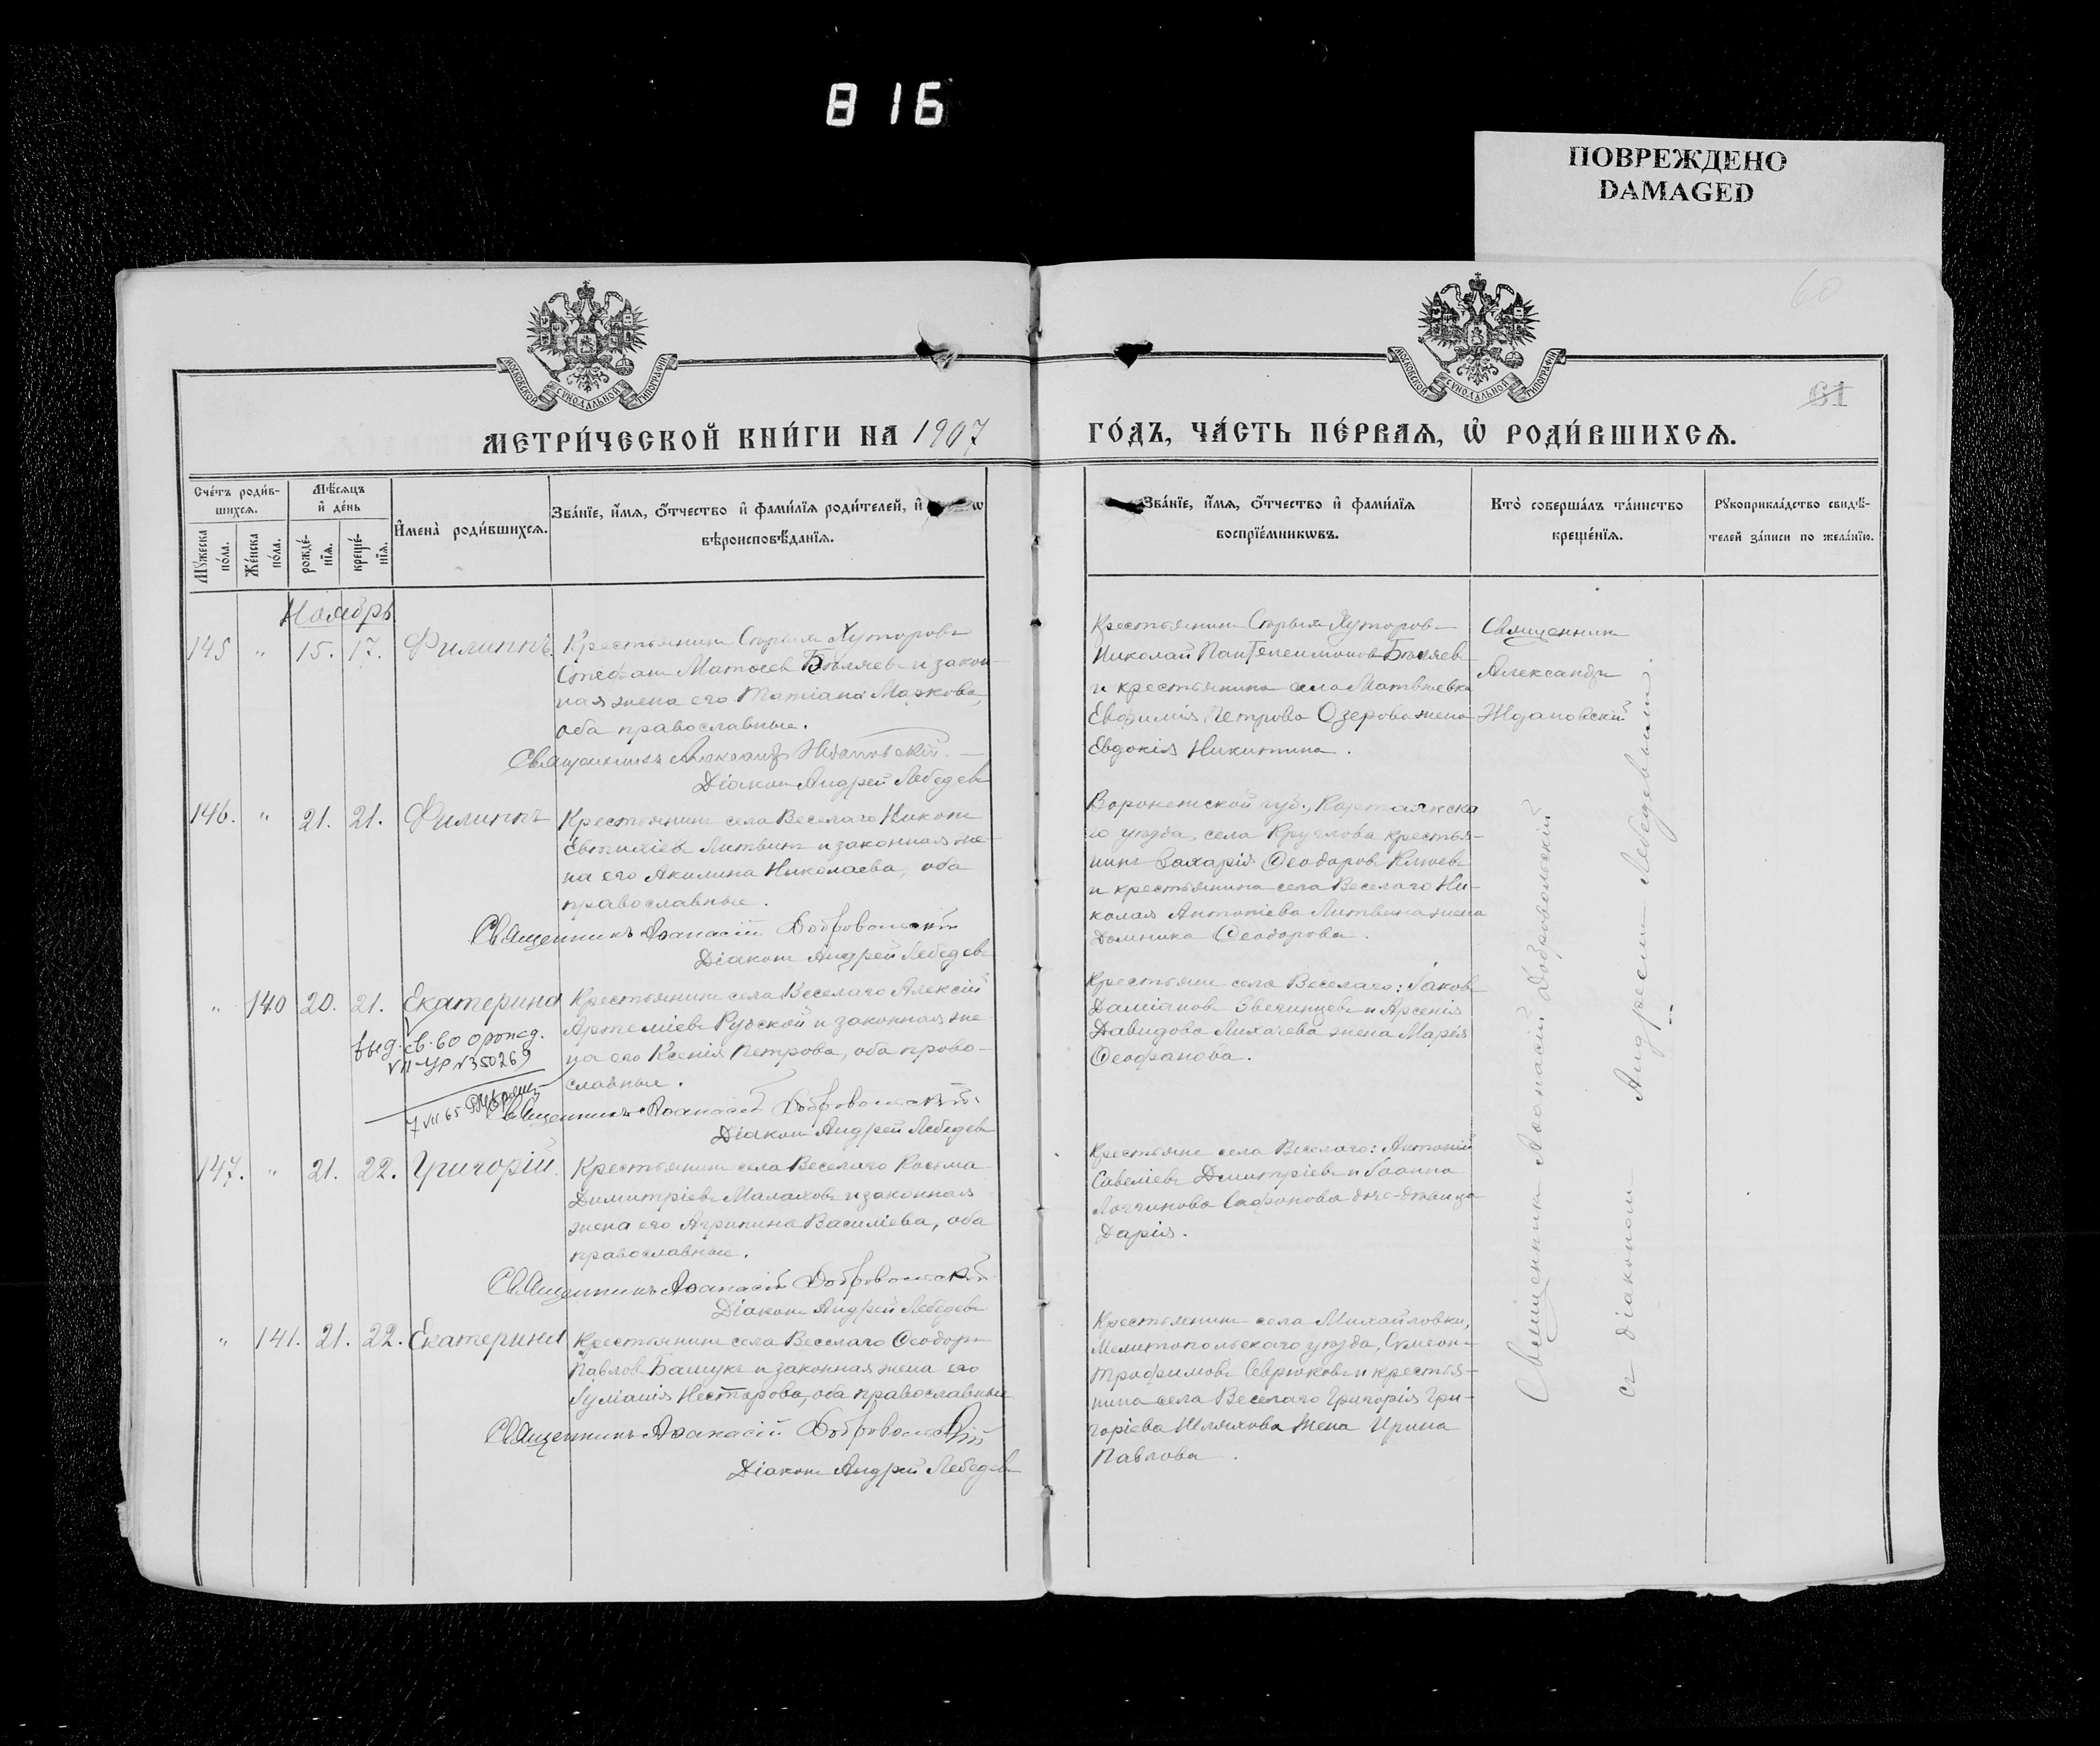 816
ПОВРЕЖДЕНО
DAMAGED
60
61
МОСКОВСКОЙ СѴНОДАЛЬНОЙ ТИПОГРАФІИ
МОСКОВСКОЙ СѴНОДАЛЬНОЙ ТИПОГРАФІИ
МЕТРИ́ЧЕСКОЙ КНИ́ГИ НА 1907
ГО́ДЪ, ЧА́СТЬ ПЕ́РВАѦ, Ѡ҆ РОДИ́ВШИХСѦ.
Сче́тъ роди́в-
шихсѧ.
Мꙋ́жеска по́ла.
Же́нска по́ла.
Мѣ́сѧцъ
и҆ де́нь
рожде́-
нїѧ.
креще́-
нїѧ.
И҆мена̀ роди́вшихсѧ.
Зва́нїе, и҆́мѧ, ѻ҆́тчество и҆ фами́лїѧ роди́телей, и҆
вѣроисповѣ́данїѧ.
Зва́нїе, и҆́мѧ, ѻ҆́тчество и҆ фами́лїѧ
воспрїе́мникѡвъ.
Кто̀ соверша́лъ та́инство
креще́нїѧ.
Рꙋкоприкла́дство свидѣ́-
телей за́писи по жела́нїю.
Ноябрь
145 " 15. 17. Филиппъ.
Крестьянинъ Старыхъ Хуторовъ
Стефанъ Матѳеевъ Бѣляевъ и закон-
ная жена его Татіана Маркова,
оба православные.
Священникъ Александръ Ждановскій.
Діаконъ Андрей Лебедевъ
Крестьянинъ Старыхъ Хуторовъ
Николай Пантелеимоновъ Бѣляевъ
и крестьянина села Матвѣевка
Евфимія Петрова Озерова жена
Евдокія Никитина.
Священникъ
Александръ
Ждановскій
146. " 21. 21. Филиппъ
Крестьянинъ села Веселаго Никонъ
Евтихіевъ Литвинъ и законная же-
на его Акилина Николаева, оба
православные.
Священникъ Аѳанасій Добровольскій
Діаконъ Андрей Лебедевъ
Воронежской губ., Коротоякска
го уѣзда, села Круглова крестья-
нинъ Захарія Ѳеодоровъ Клюевъ
и крестьянина села Веселаго Ни-
колая Антоніева Литвина жена
Домника Ѳеодорова.
" 140 20. 21. Екатерина
Крестьянинъ села Веселаго Алексій
Артеміевъ Рудской и законная же-
на его Ксенія Петрова, оба право-
славные.
Священникъ Аѳанасій Добровольскій.
Діаконъ Андрей Лебедевъ
выд. св-во о рожд.
VII-УР № 350269
7 VII 65
Крестьяне села Веселаго: Іаковъ
Даміановъ Звегинцевъ и Арсенія
Давидова Лихачева жена Марія
Ѳеофанова.
147. " 21. 22. Григорій.
Крестьянинъ села Веселаго Косьма
Димитріевъ Малаховъ и законная
жена его Агрипина Василіева, оба
православные.
Священникъ Аѳанасій Добровольскій
Діаконъ Андрей Лебедевъ
Крестьяне села Веселаго: Антоній
Савеліевъ Дмитріевъ и Іоанна
Логгинова Сафонова дочь-дѣвица
Дарія.
" 141. 21. 22. Екатерина
Крестьянинъ села Веселаго Ѳеодоръ
Павловъ Башукъ и законная жена его
Іуліанія Несторова, оба православные
Священникъ Аѳанасій Добровольскій
Діаконъ Андрей Лебедевъ
Крестьянинъ села Михайловки,
Мелитопольскаго уѣзда, Сѵмеонъ
Трофимовъ Севрюковъ и крестья-
нина села Веселаго Григорія Гри-
горіева Шляхова жена Ирина
Павлова.
Священникъ Аѳанасій Добровольскій
съ діакономъ Андреемъ Лебедевымъ.